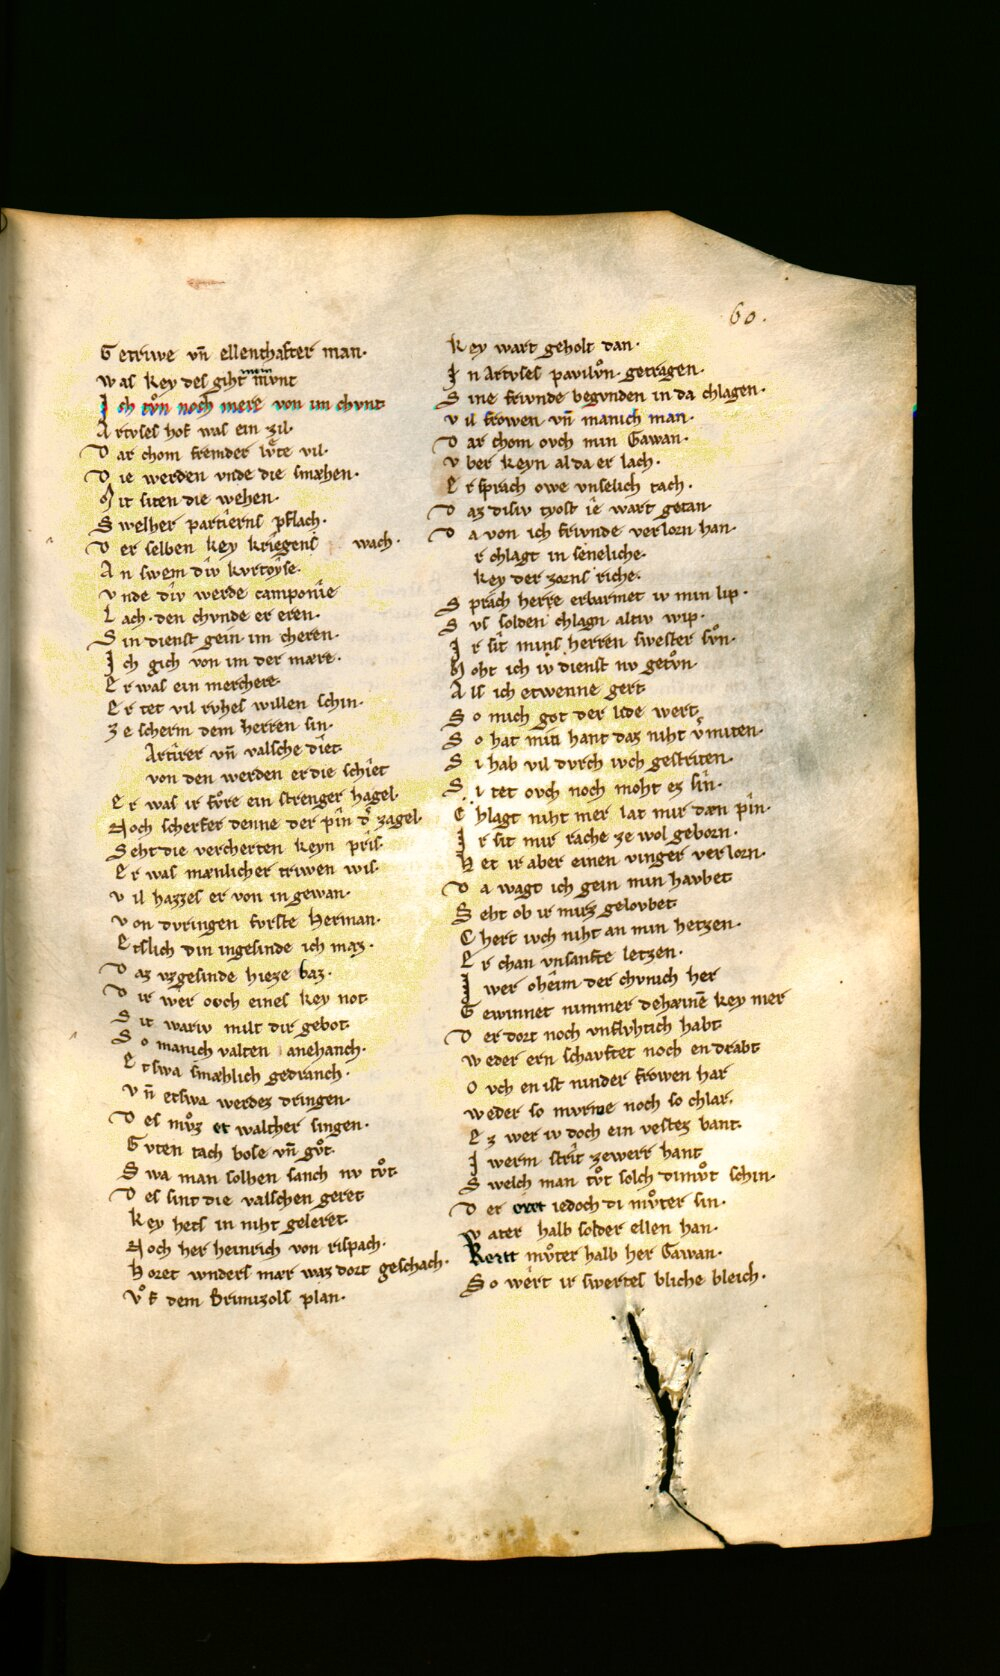 60.
Getriwe vn̄ ellenthafter man·
was key des giht min mvnt
Ich tv̊n noch mere von im chvnt
Artvses hof was ein zil·
Dar chom fremder lv̂te vil·
Die werden vnde die smæhen·
Mit siten die wehen·
Swelher partierns pflach·
Der selben key kriegens wach·
An swem div kvrtoyse·
vnde div werde camponîe
Lach· den chvnde er eren·
Sin dienst gein im cheren·
Ich gich von im der mære·
Er was ein merchere
Er tet vil rvhes willen schin·
ze scherm dem herren sin·
Artirer vn̄ valsche diet
von den werden er die schiet
Er was ir fv̊re ein strenger hagel·
Noch scherfer denne der pîn d̾ zagel·
Seht die vercherten keyn pris·
Er was mænlicher triwen wis·
vil hazzes er von in gewan·
von dvringen fvrste Herman·
Etslich din ingesinde ich maz·
Daz vzgesinde hieze baz·
Dir wer ovch eines key not
Sit wariv milt dir gebot
So manich valten anehanch·
Etswa smæhlich gedranch·
vn̄ etswa werdez dringen·
Des mv̊z er walther singen·
Gvten tach bose vn̄ gv̊t·
Swa man solhen sanch nv tv̊t·
Des sint die valschen geret
key hets in niht geleret
Noch her heinrich von rispach·
Horet wnders mær waz dort geschach·
v̊f dem Brimizols plan·
key wart geholt dan·
In Artvses pavilv̊n getragen·
Sine frivnde begvnden in da chlagen·
vil frowen vn̄ manich man·
Dar chom ovch min Gawan·
vber keyn al da er lach·
Er sprach owe vnselich tach·
Daz disiv tyost ie wart getan·
Da von ich frivnde verlorn han·
r chlagt in seneliche·
key der zorns riche·
Sprach herre erbarmet iv min lip·
Svs solden chlagn altiv wip·
Ir sit mins herren swester sv̊n·
Moht ich iv dienst nv getv̊n·
Als ich etwenne gert
So mich got der lide wert
So hat min hant daz niht v̾miten·
Si hab vil dvrch ivch gestriten·
Si tet ovch noch moht ez sin·
Chlagt niht mer lat mir dæn pîn·
Ir sit mir rache ze wol geborn·
Het ir aber einen vinger verlorn·
Da wagt ich gein min havbet
Seht ob ir mirz gelovbet
Chert ivch niht an min hetzen·
Er chan vnsanfte letzen·
Iwer oheim der chvnich her
Gewinnet nimmer dehæinē key mer
Der dort noch vnflvhtich habt
weder ern schavftet noch en drabt
Ovch en ist ninder frowen har
weder so mvrwe noch so chlar·
Ez wer iv doch ein vestez bant·
Iwerm strit zewerr hant
Swelch man tv̊t solch dimv̊t schin·
Der eret iedoch di mv̊ter sin·
vater halb solder ellen han·
Kert mv̊ter halb her Gawan·
So wert ir swertes bliche bleich·